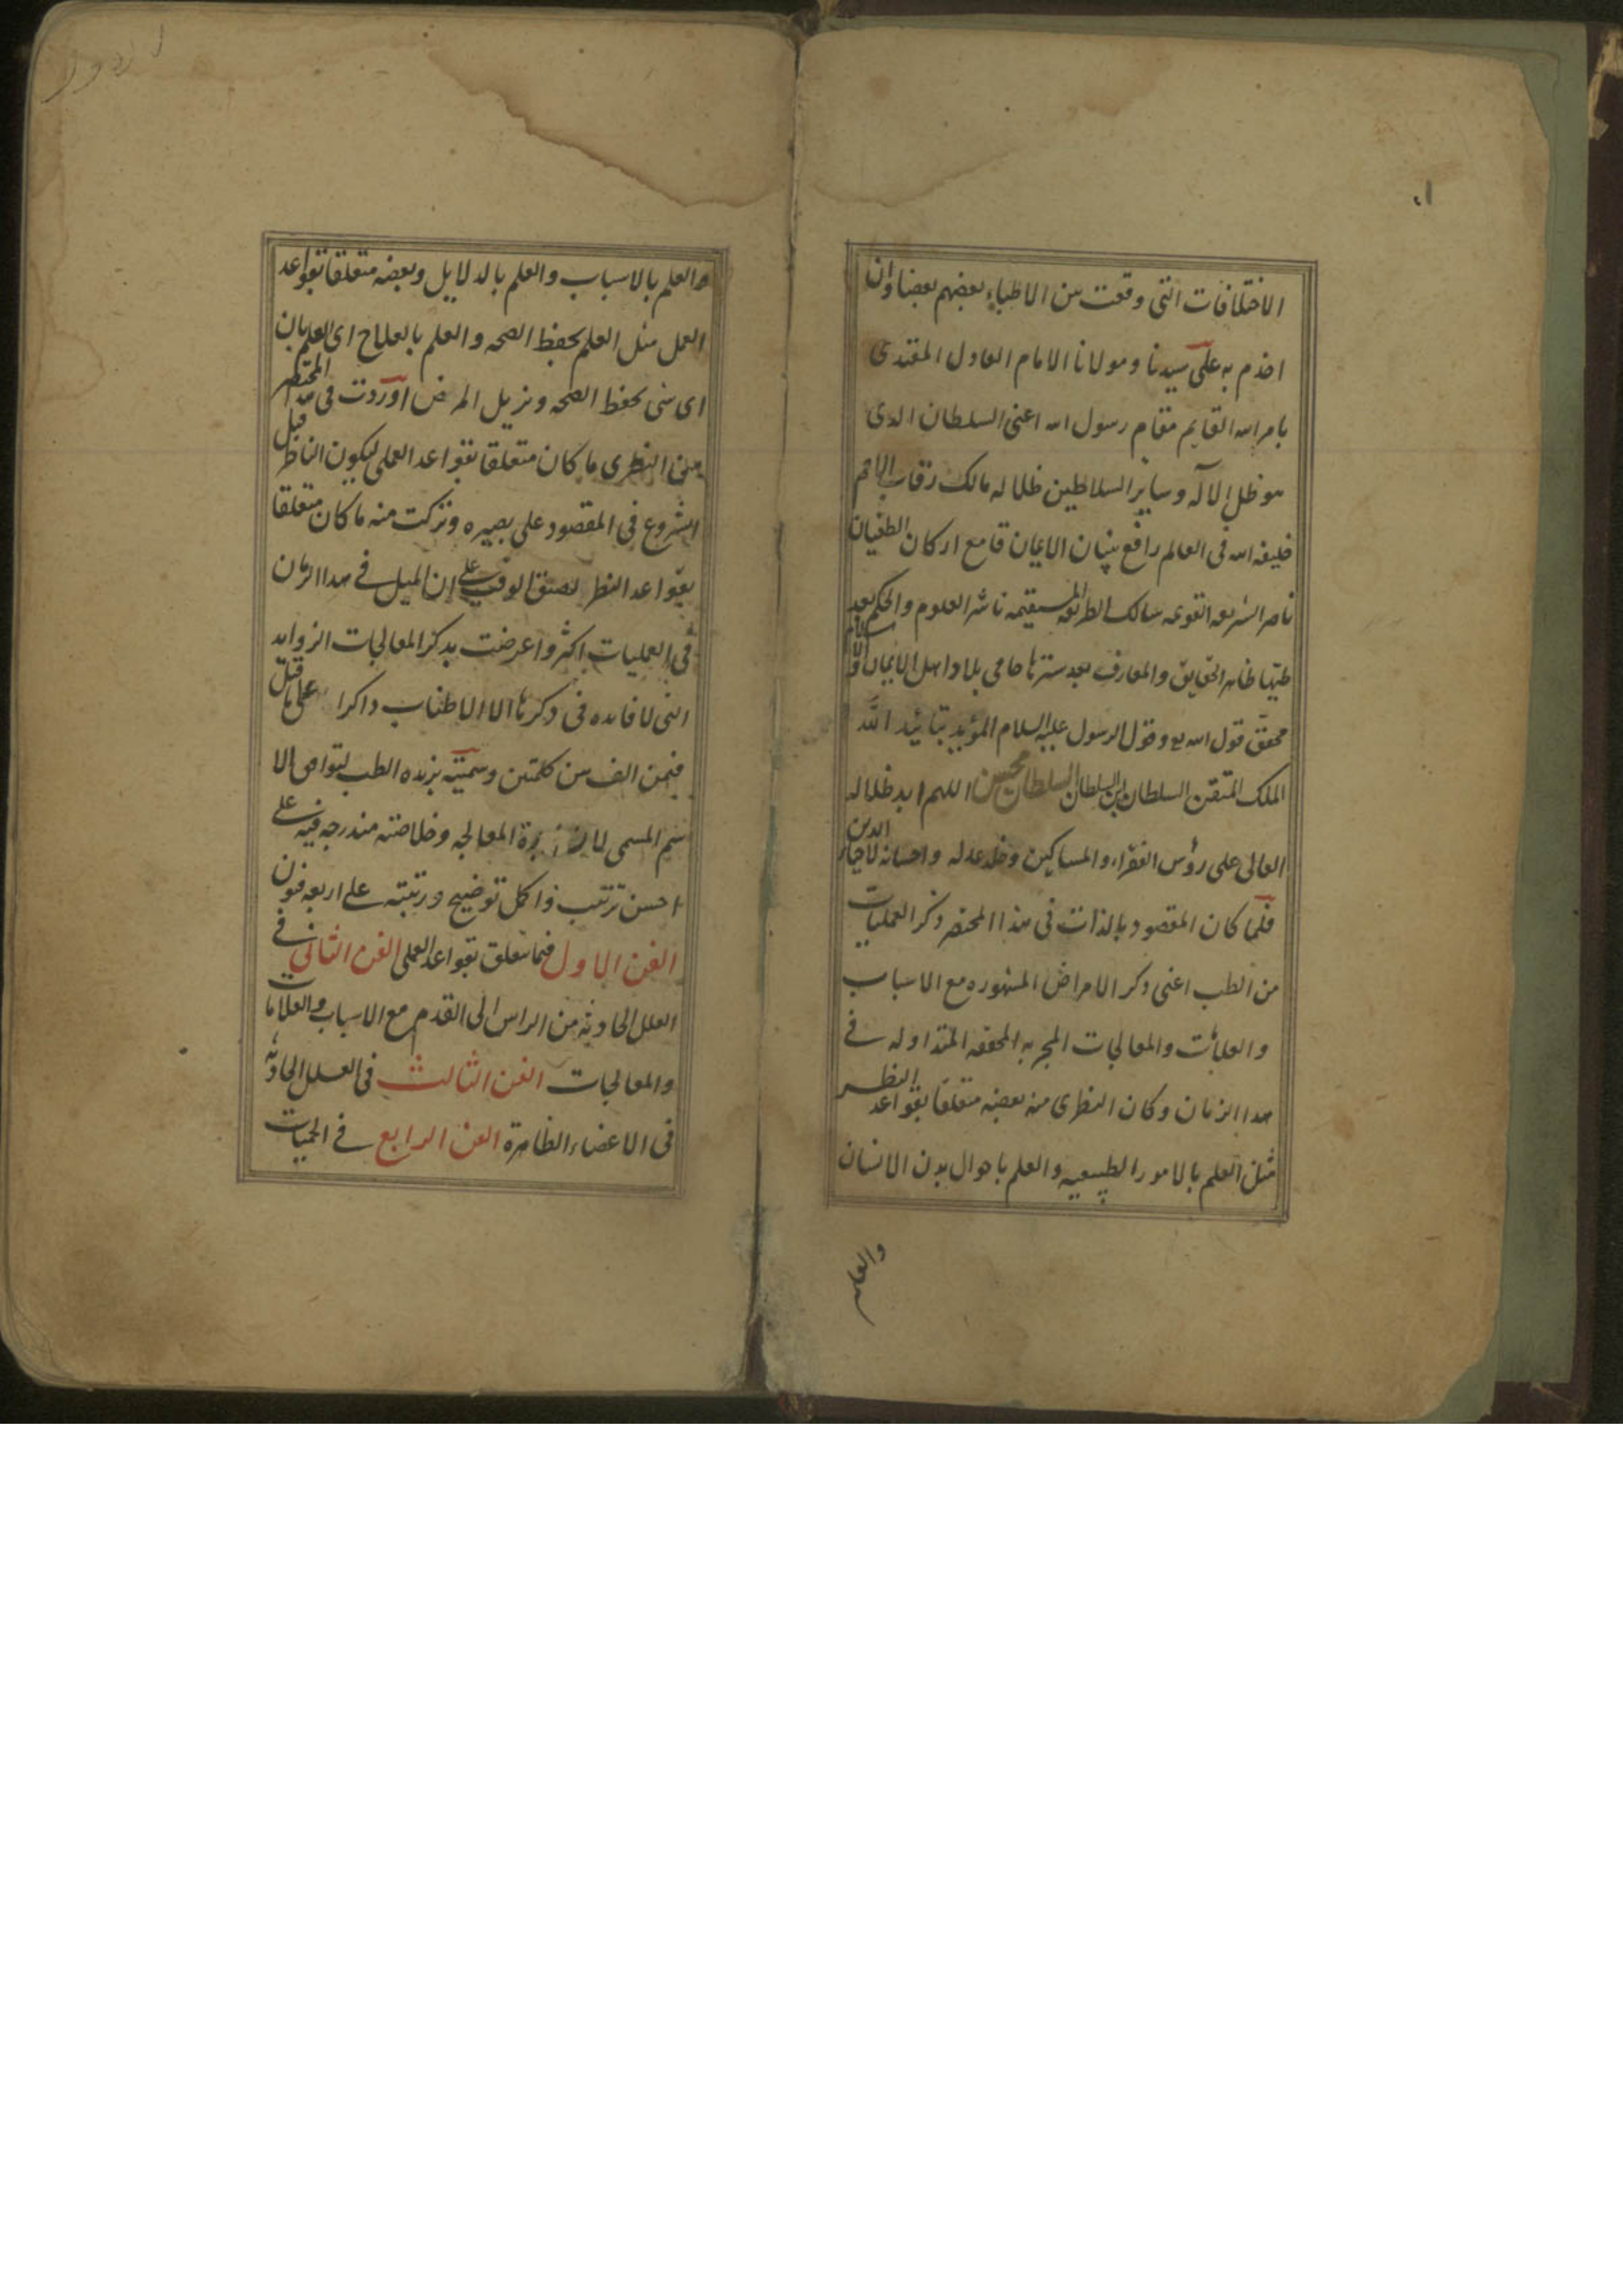 الاختلافات التی وقعت بین الاطباء بعضهم بعضا وان
اخدم به علی سیدنا و مولانا الامام العادل المقتدی
بامر الله القایم مقام رسول الله اعنی السلطان الدی
هو ظل الاله وسایر السلاطین ظلاله مالک رقاب الامم
خلیفه الله فی العالم رافع بنیان الایمان قامع ارکان الطغیان
ناصر الشریعه القویمه سالک الطریقه المستقیمه ناشر العلوم والحکم بعد
طیها ظاهر الحقایق والمعارف بعد سترها حامی بلاد اهل الایمان والاسلام
محقق قول الله و قول الرسول علیه السلام المؤید بتائید الله
الملک السلطان ابن السلطان السلطان اللهم ابد ظلاله
العالی علی رؤس الفقراء والمساکین وخلد عدله واحسانه لاحیاء الدین
فلما کان المقصود بالذات فی هذا المختصر ذکر العملیات
من الطب اعنی دکر الامراض المشهوره مع الاسباب
والعلامات والمعالجات المجربه المحققه المتداوله فی
هدا الزمان وکان النظری منه بعضه متعلقا بقواعد النظر
مثل العلم بالامور الطبیعیه والعلم باحوال بدن الانسان
والعلم
والعلم بالاسباب والعلم بالدلایل وبعضه متعلقا بقواعد
العمل مثل العلم بحفظ الصحه والعلم بالعلاج ای العلم بان
ای شی بحفظ الصحه ویزیل المرض اوردت فی هدا المختصر
من النظری ما کان متعلقا بقواعد العملی لیکون الناظر قبل
الشروع فی المقصود علی بصیره وترکت منه ما کان متعلقا
بقواعد النظر لضیق الوقت علی ان المیل فی هدا الزمان
فی العملیات اکثر واعرضت بدکر المعالجات الزواید
التی لا فایده فی دکرها الا الاطناب داکرا علی ما قیل
فیمن الف من کلمتین وسمیته بزبده الطب لیتوافق الا
سم المسمی لان زبدة المعالجه وخلاصته مندرجه فیه علی
احسن ترتیب واکمل توضیح ورتبته علی اربعه فنون
الفن الاول فیما یتعلق بقواعد العملی الفن الثانی فی
العلل الحادثه من الراس الی القدم مع الاسباب والعلامات
والمعالجات الفن الثالث فی العلل الحادثه
فی الاعضاء الظاهرة الفن الرابع فی الحمیات